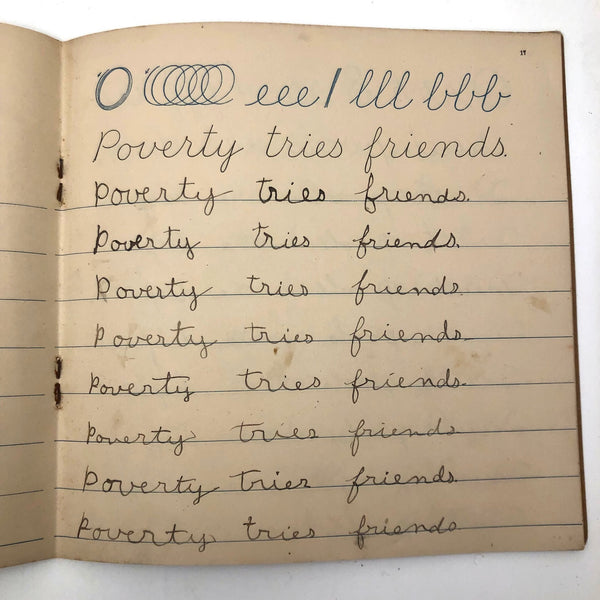 17
O OOOOOO eee / lll bbb
Poverty tries friends.
Poverty tries friends.
Poverty tries friends.
Poverty tries friends
Poverty tries friends.
Poverty tries friends.
Poverty tries friends
Poverty tries friends.
Poverty tries friends